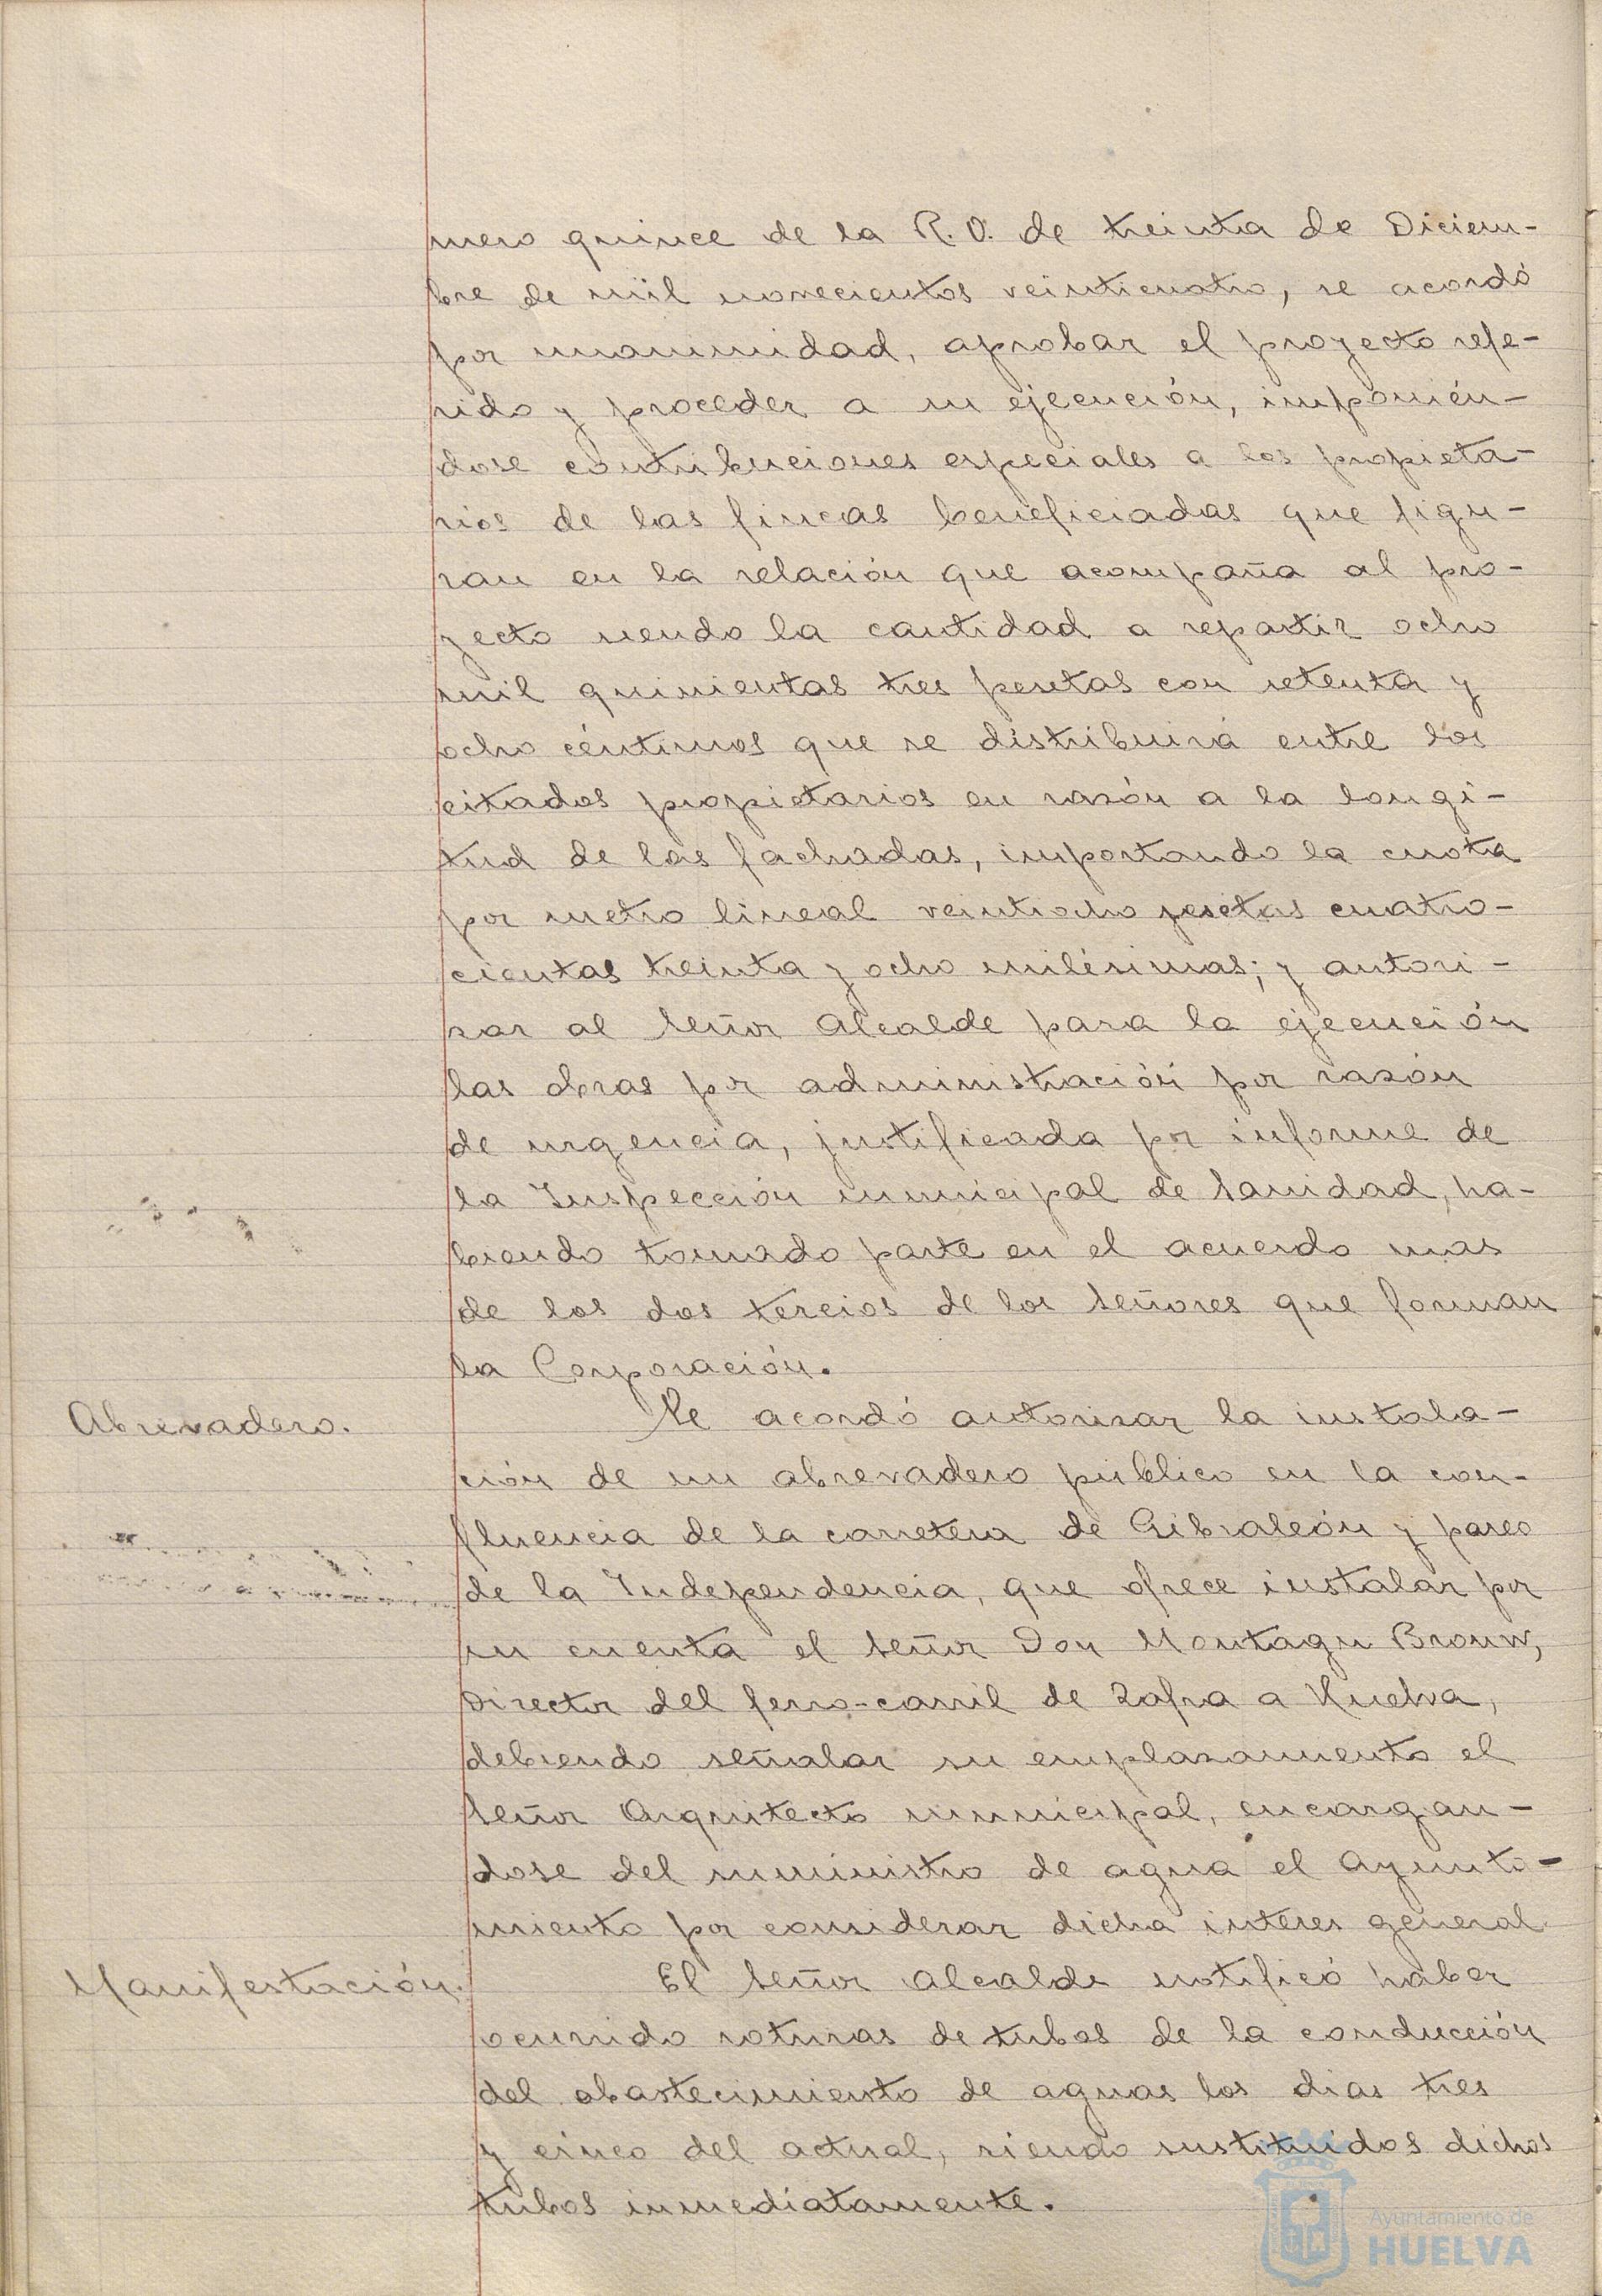 mero quince de la R. O. de treinta de Diciem-
bre de mil novecientos veinticuatro, se acordó
por unanimidad, aprobar el proyecto refe-
rido y proceder a su ejecución, imponién-
dose contribuciones especiales a los propieta-
rios de las fincas beneficiadas que figu-
ran en la relación que acompaña al pro-
yecto siendo la cantidad a repartir ocho
mil quinientas tres pesetas con setenta y
ocho céntimos que se distribuirá entre los
citados propietarios en razón a la longi-
tud de las fachadas, importando la cuota
por metro lineal veintiocho pesetas cuatro-
cientas treinta y ocho milésimas; y autori-
zar al Señor Alcalde para la ejecución
las obras por administración por razón
de urgencia, justificada por informe de
la Inspección municipal de Sanidad, ha-
biendo tomado parte en el acuerdo mas
de los dos tercios de los Señores que forman
la Corporación.
Abrevadero.
Se acordó autorizar la instala-
ción de un abrevadero público en la con-
fluencia de la carretera de Gibraleón y paseo
de la Independencia, que ofrece instalar por
su cuenta el Señor Don Montagu Brown,
Director del ferro-carril de Zafra a Huelva,
debiendo señalar su emplazamiento el
Señor Arquitecto municipal, encargan-
dose del suministro de agua el Ayunta-
miento por considerar dicha interes general.
Manifestación.
El Señor Alcalde notificó haber
ocurrido roturas de tubos de la conducción
del abastecimiento de aguas los dias tres
y cinco del actual, siendo sustituidos dichos
tubos inmediatamente.
Ayuntamiento de
HUELVA